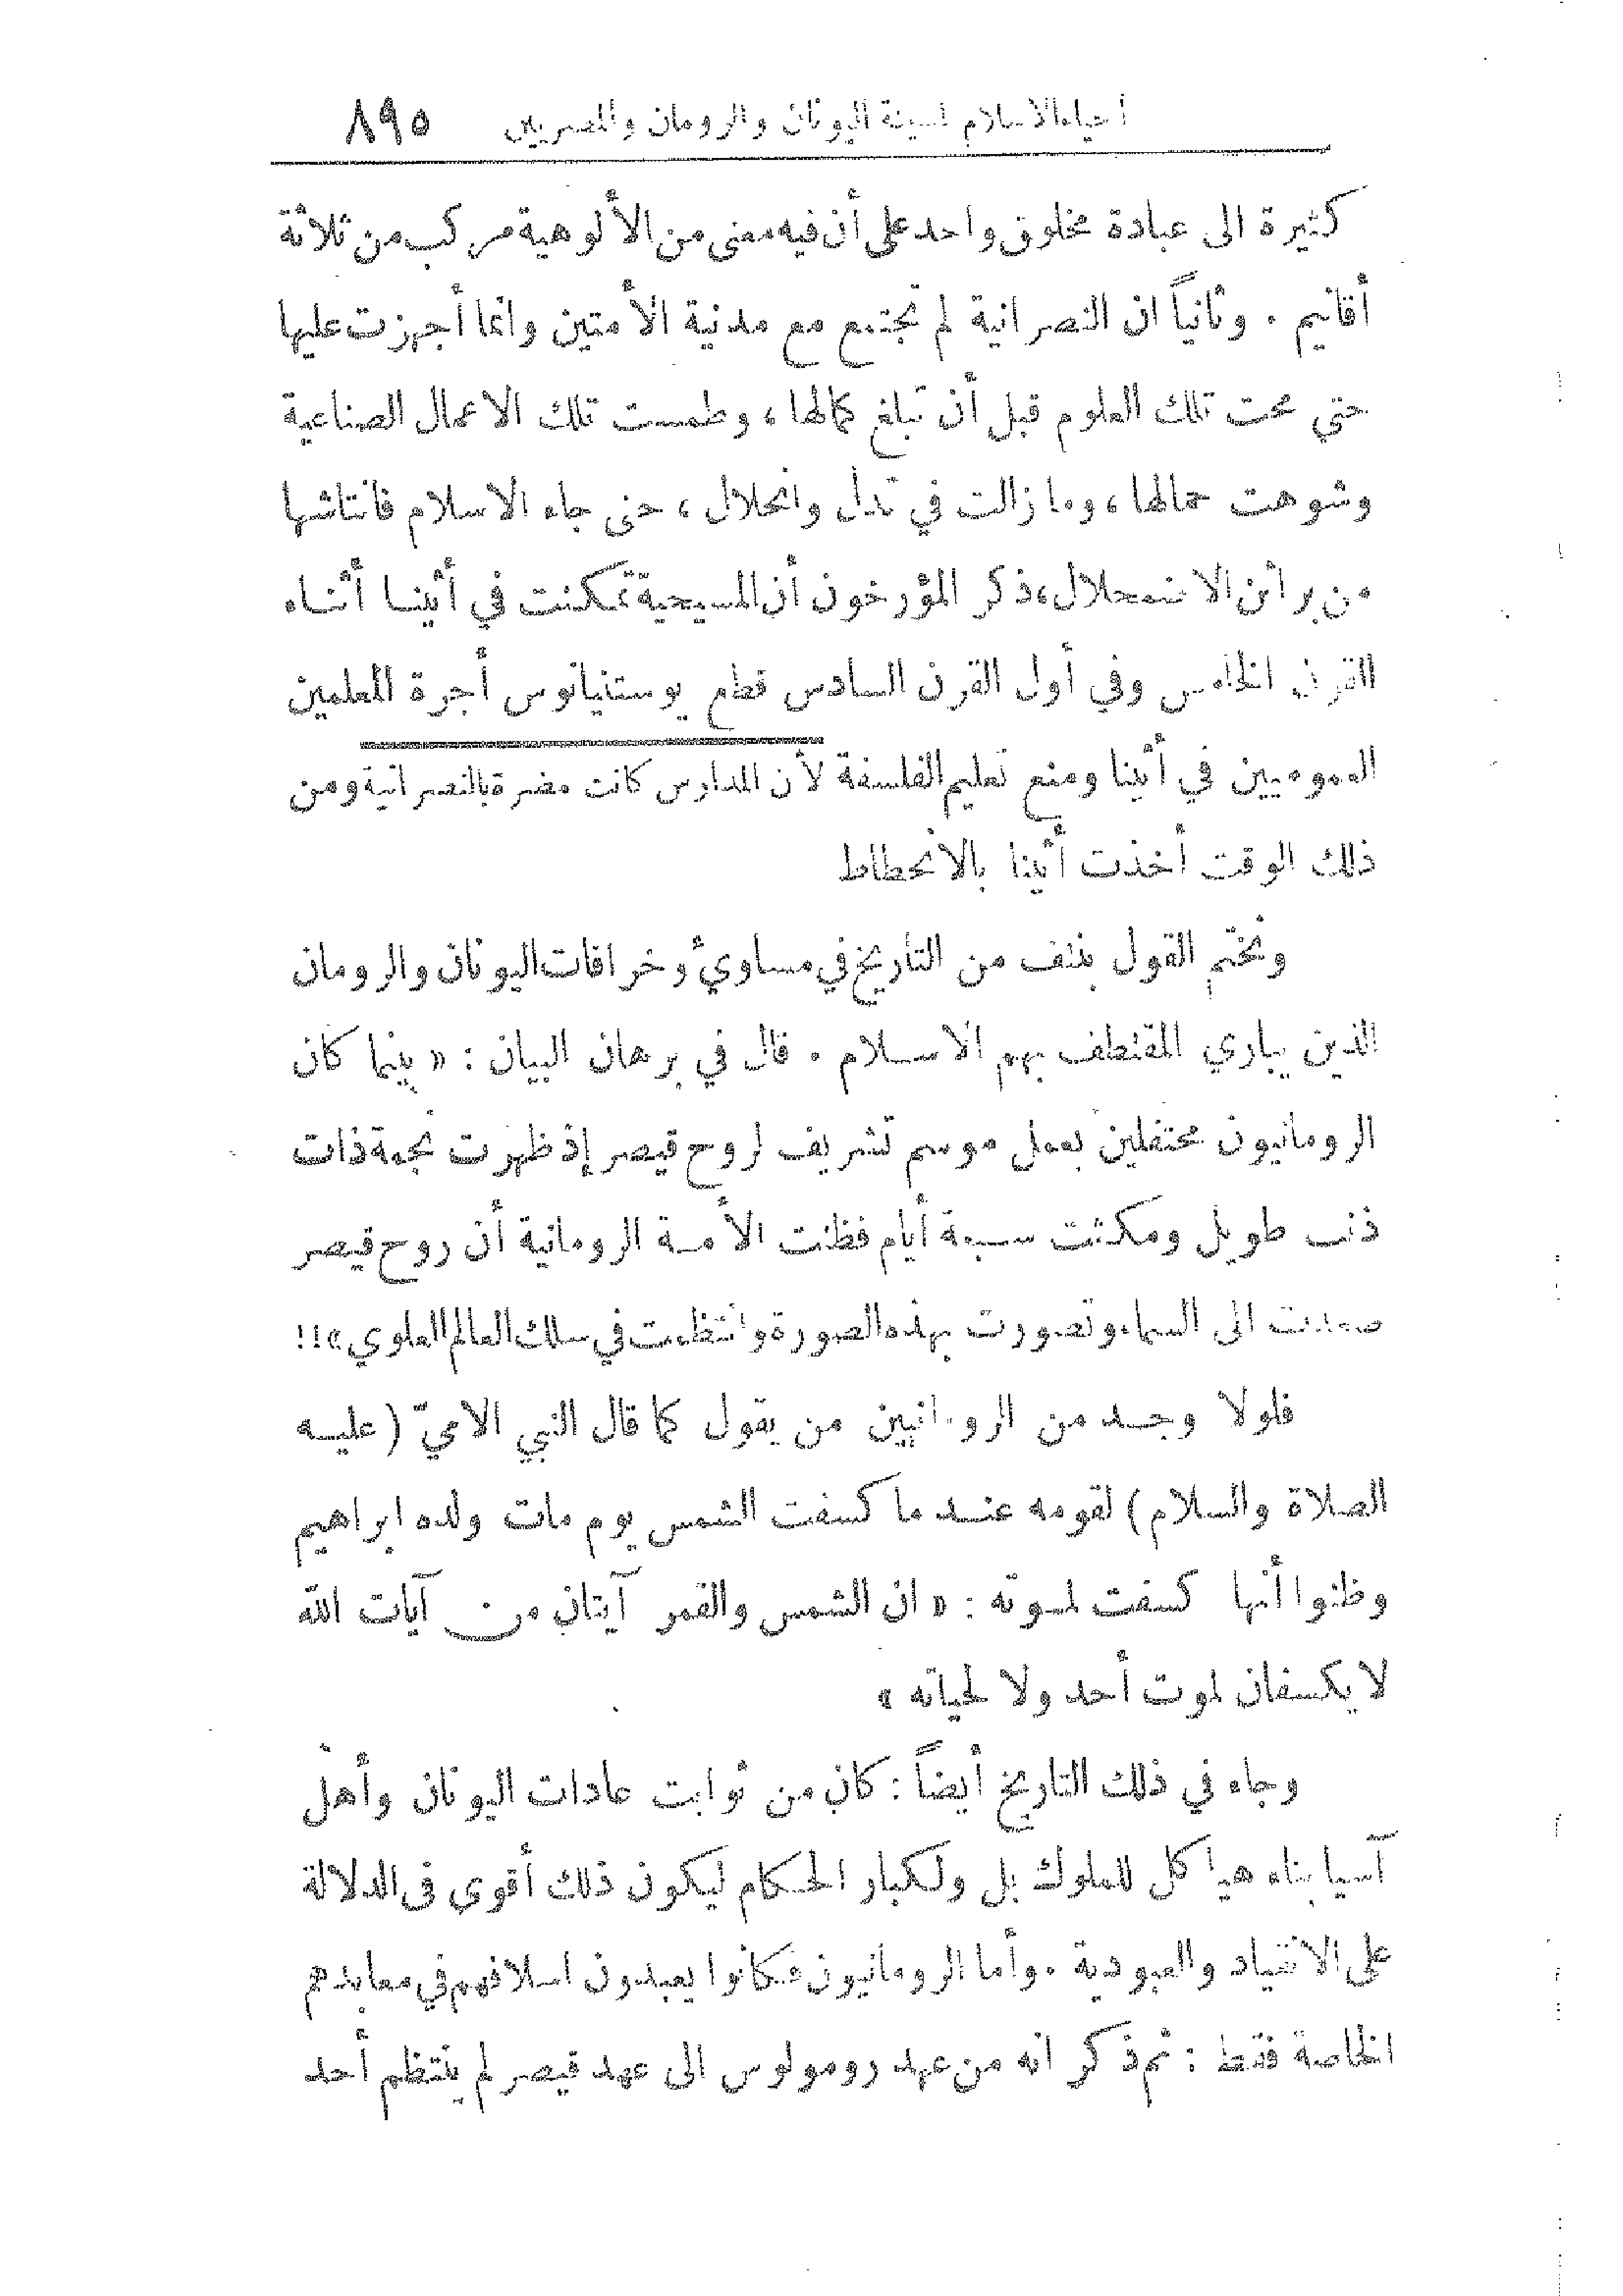 أحياء الاسلام لمدينة اليونان والرومان والمصريين ٨٩٥
كثيرة الى عبادة مخلوق واحد على أن فيه معنى من الألوهية مركب من ثلاثة
أقانيم . وثانياً ان النصرانية لم تجتمع مع مدنية الأمتين وانما أجهزت عليها
حتى محت تلك العلوم قبل أن تبلغ كمالها ، وطمست تلك الاعمال الصناعية
وشوهت جمالها ، وما زالت في تدل وانحلال ، حتى جاء الاسلام فانتاشها
من براثن الاضمحلال ، ذكر المؤرخون أن المسيحية تمكنت في أثينا أثناء
القرن الخامس وفي أول القرن السادس قطع يوستنيانوس أجرة المعلمين
العموميين في أثينا ومنع تعليم الفلسفة لأن المدارس كانت مضرة بالنصرانية ومن
ذلك الوقت أخذت أثينا بالانحطاط
ونختم القول بنتف من التأريخ في مساوئ وخرافات اليونان والرومان
الذين يباري المقتطف بهم الاسلام . قال في برهان البيان : « بينما كان
الرومانيون محتفلين بعمل موسم تشريف لروح قيصر إذ ظهرت نجمة ذات
ذنب طويل ومكثت سبعة أيام فظنت الأمة الرومانية أن روح قيصر
صعدت الى السماء وتصورت بهذه الصورة وانتظمت في سلك العالم العلوي » !!
فلولا وجد من الرومانيين من يقول كما قال النبي الاميّ (عليه
الصلاة والسلام) لقومه عند ما كسفت الشمس يوم مات ولده ابراهيم
وظنوا أنها كسفت لموته : « ان الشمس والقمر آيتان من آيات الله
لا يكسفان لموت أحد ولا لحياته »
وجاء في ذلك التاريخ أيضاً : كان من ثوابت عادات اليونان وأهل
آسيا بناء هياكل للملوك بل ولكبار الحكام ليكون ذلك أقوى في الدلالة
على الانقياد والعبودية . وأما الرومانيون فكانوا يعبدون اسلافهم في معابدهم
الخاصة فقط : ثم ذكر انه من عهد رومولوس الى عهد قيصر لم ينتظم أحد